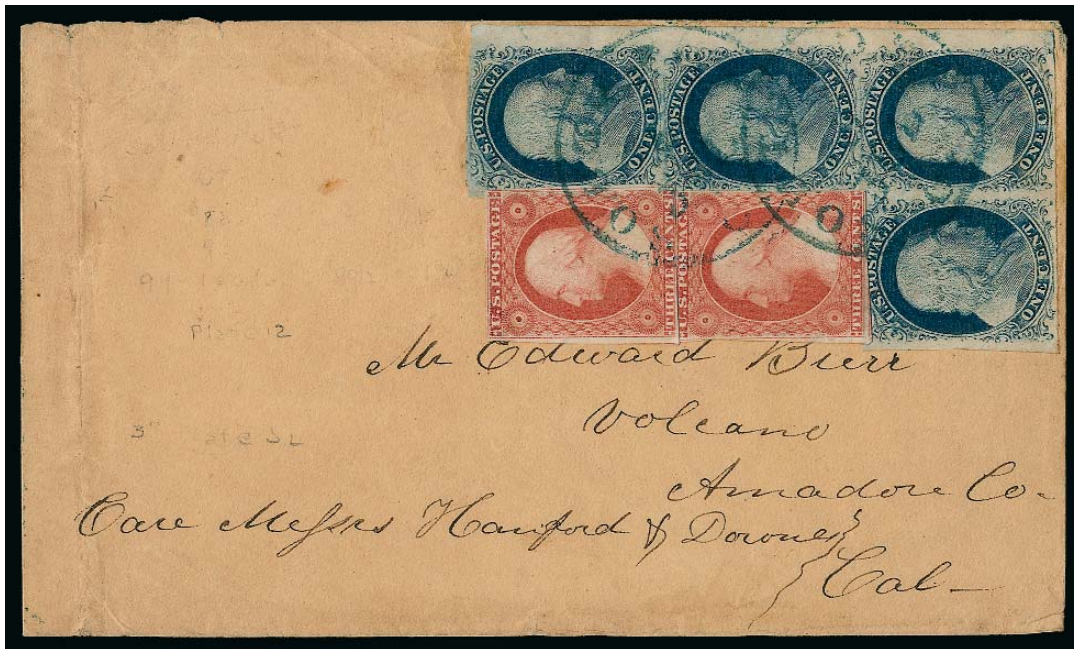 U.S. POSTAGE ONE CENT U.S. POSTAGE ONE CENT U.S. POSTAGE ONE CENT
U.S. POSTAGE THREE CENTS U.S. POSTAGE THREE CENTS U.S. POSTAGE ONE CENT
Mr Edward Burr
Volcano
Amadore Co.
Care Messrs Hanford & Downes
Cal